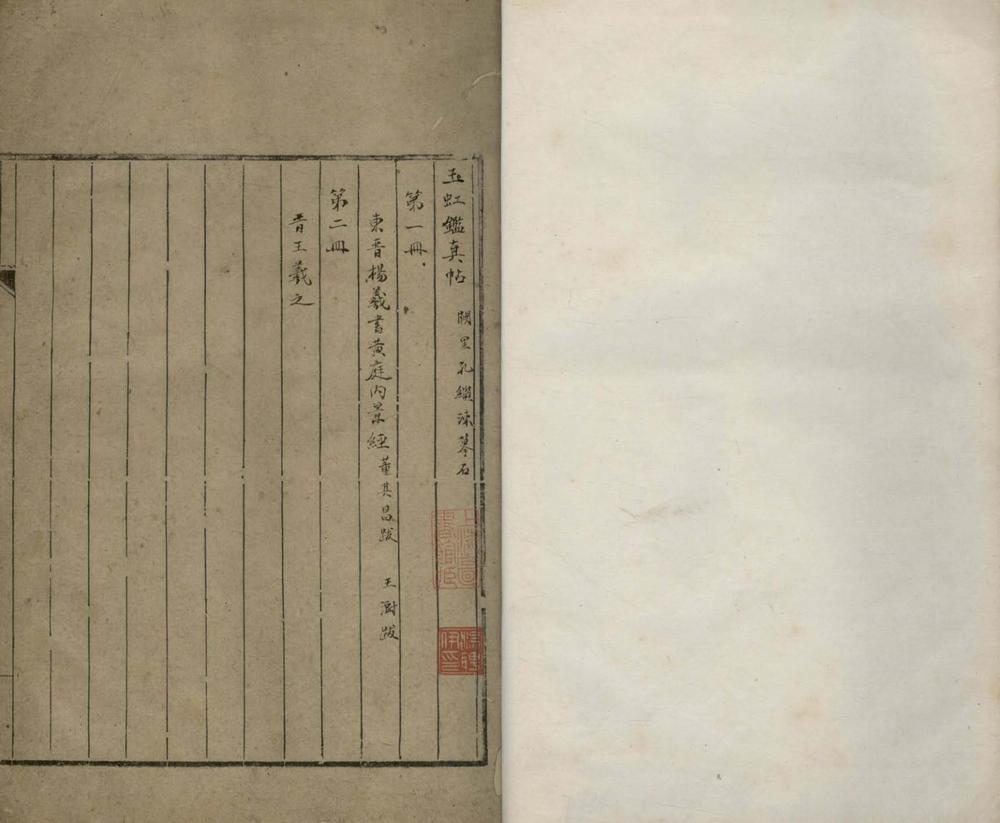 玉虹鑑真帖 闕里孔繼涑摹石
第一冊
東晉楊羲書黃庭內景經 董其昌跋 王澍跋
第二冊
晉王羲之
上海圖書館藏